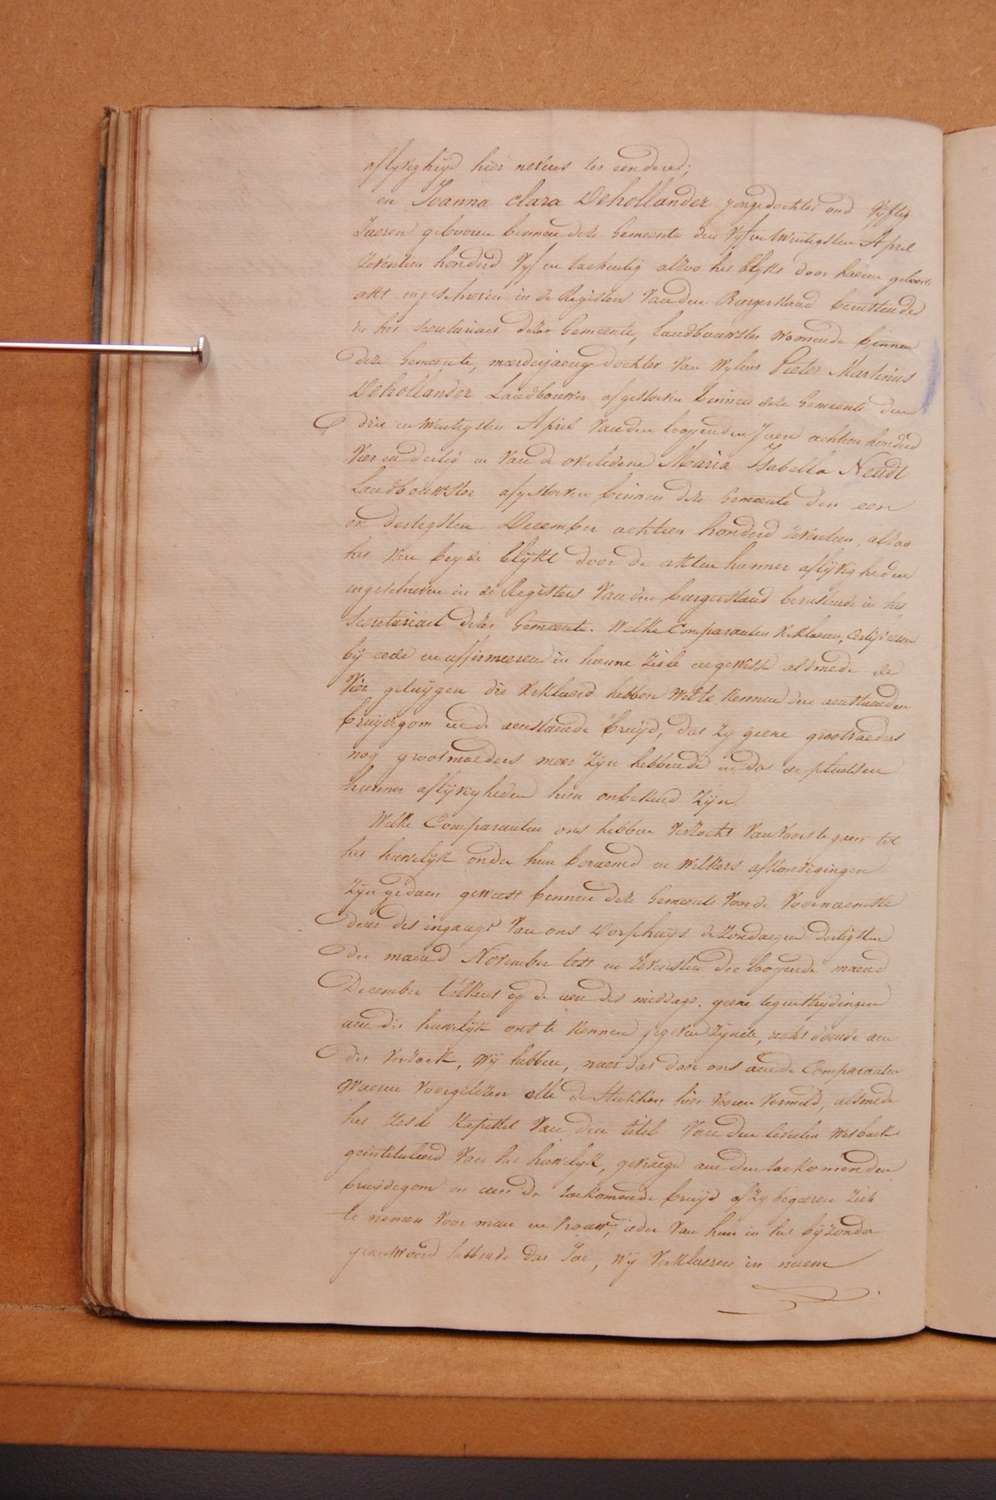 aflyvigheyd hier nevens ten eenderd;
en Joanna Clara Dehollander jongedochter oud Vyftig
Jaeren gebooren binnen deze Gemeente den Vyf en twentigsten April
Zeventien honderd Vyf en tachentig alzoo het blykt door haere geboort
akt ingeschreven in de Registers van den Burgerstand berustende
in het secretariaet dezer Gemeente, landbouwster woonende binnen
deze Gemeente, meerderjaerige dochter van wylens Pieter Martinus
Dehollander Landbouwer afgestorven binnen deze Gemeente den
drie en twentigsten April van den loopenden Jaere achtien honderd
Vier en dertig en van de overledene Maria Isabella Neudt
Landbouwster afgestorven binnen deze Gemeente den een
en dertigsten December achtien honderd zeventien, alzoo
het van beyde blykt door de akten hunner aflyvigheden
ingeschreven in de Registers van den burgerstand berustende in het
Secretariaet dezer Gemeente. Welke Comparanten verklaeren, certifieeren
by eede en affirmeeren in hunne ziele en gewisse alsmede de
Vier getuygen die verklaerd hebben wel te kennen den aenstaenden
bruydegom en de aenstaende bruyd, dat zy geene grootvaeders
nog grootmoeders meer zyn hebbende en dat de plaetsen
hunner aflyvigheden hun onbekend zyn.
Welke Comparanten ons hebben verzocht van voorts te gaen tot
het huwelyk onder hun beraemd en welkers afkondigingen
zyn gedaen geweest binnen deze Gemeente voor de voornaemste
deur des ingangs van ons Dorphuys de zondaegen dertigsten
der maend November lest en zevensten der loopende maend
December telkens op de uer des middags. geene tegenstrydingen
aen dit huwelyk ons te kennen gegeven zynde, recht doende aen
dit verzoek, wy hebben, naer dat door ons aen de Comparanten
waeren voorgelezen alle de stukken hier voren vermeld, alsmede
het zesde Kapittel van den titel van den Civielen wetboek
geintituleerd van het huwelyk, gevraegd aen den toekomenden
bruidegom en aen de toekomende bruyd of zy begeeren zich
te nemen voor man en vrouw, ieder van hun in het byzonder
geantwoord hebbende dat Jae, wy verklaeren in naem